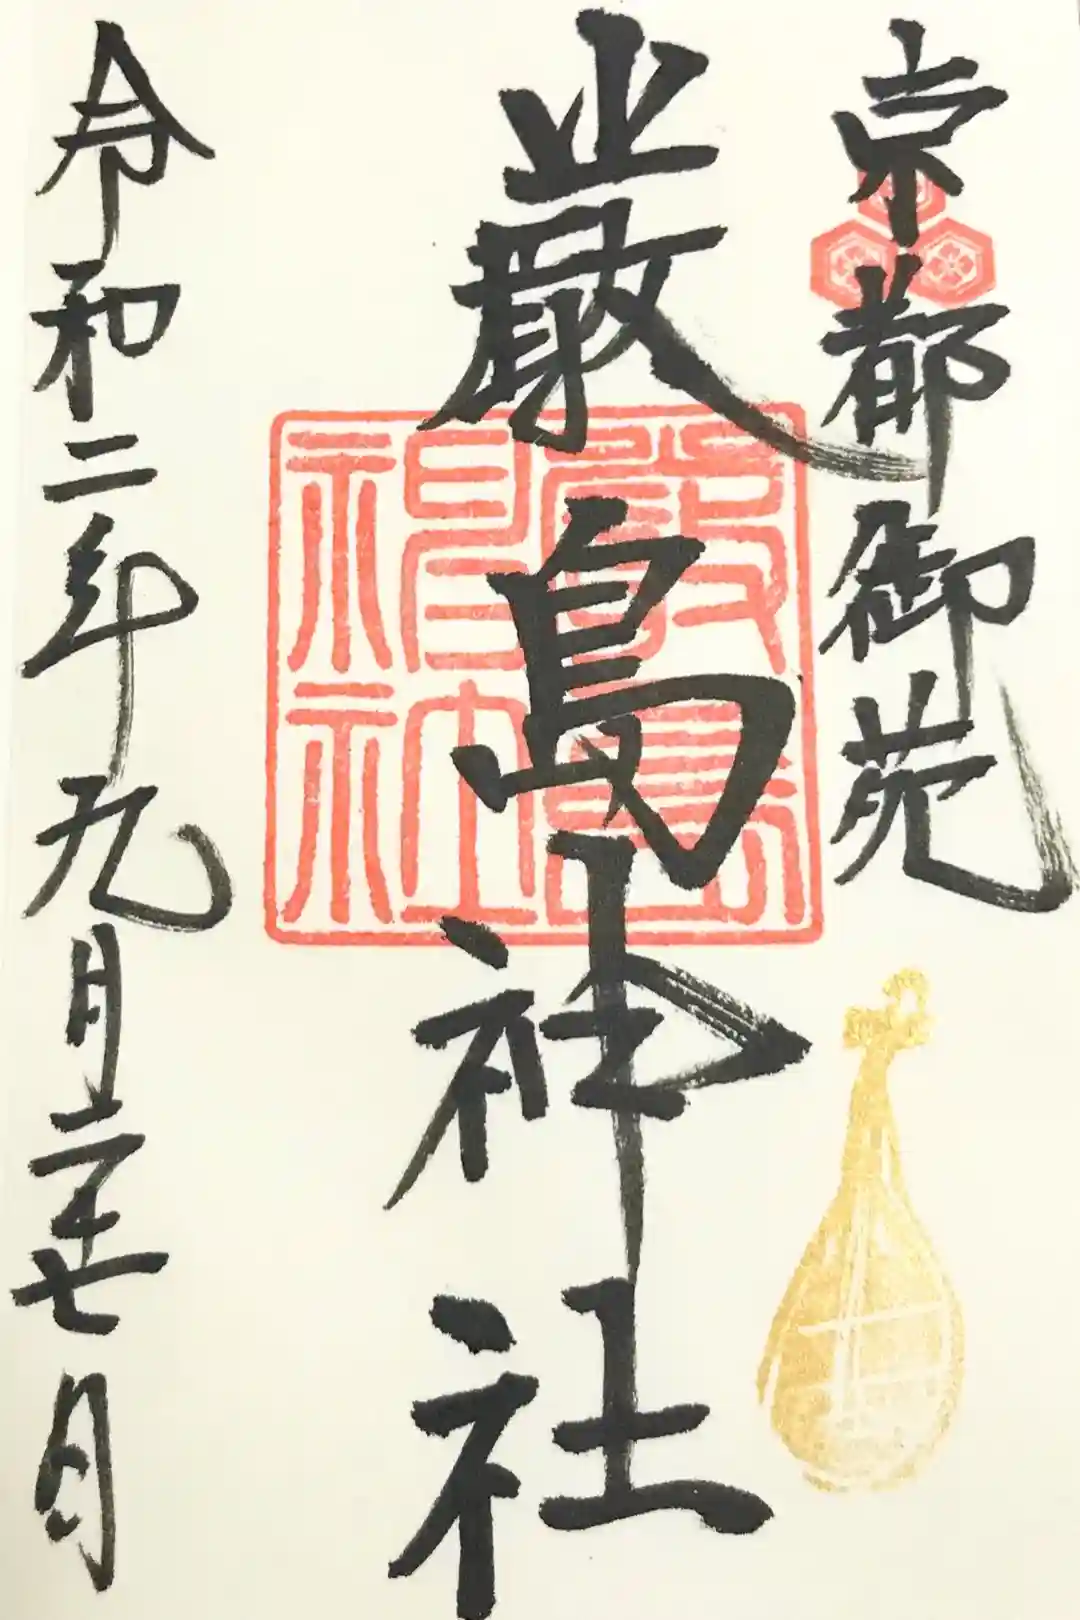 京都御苑
厳島神社
令和二年九月二十七日
厳島
神社